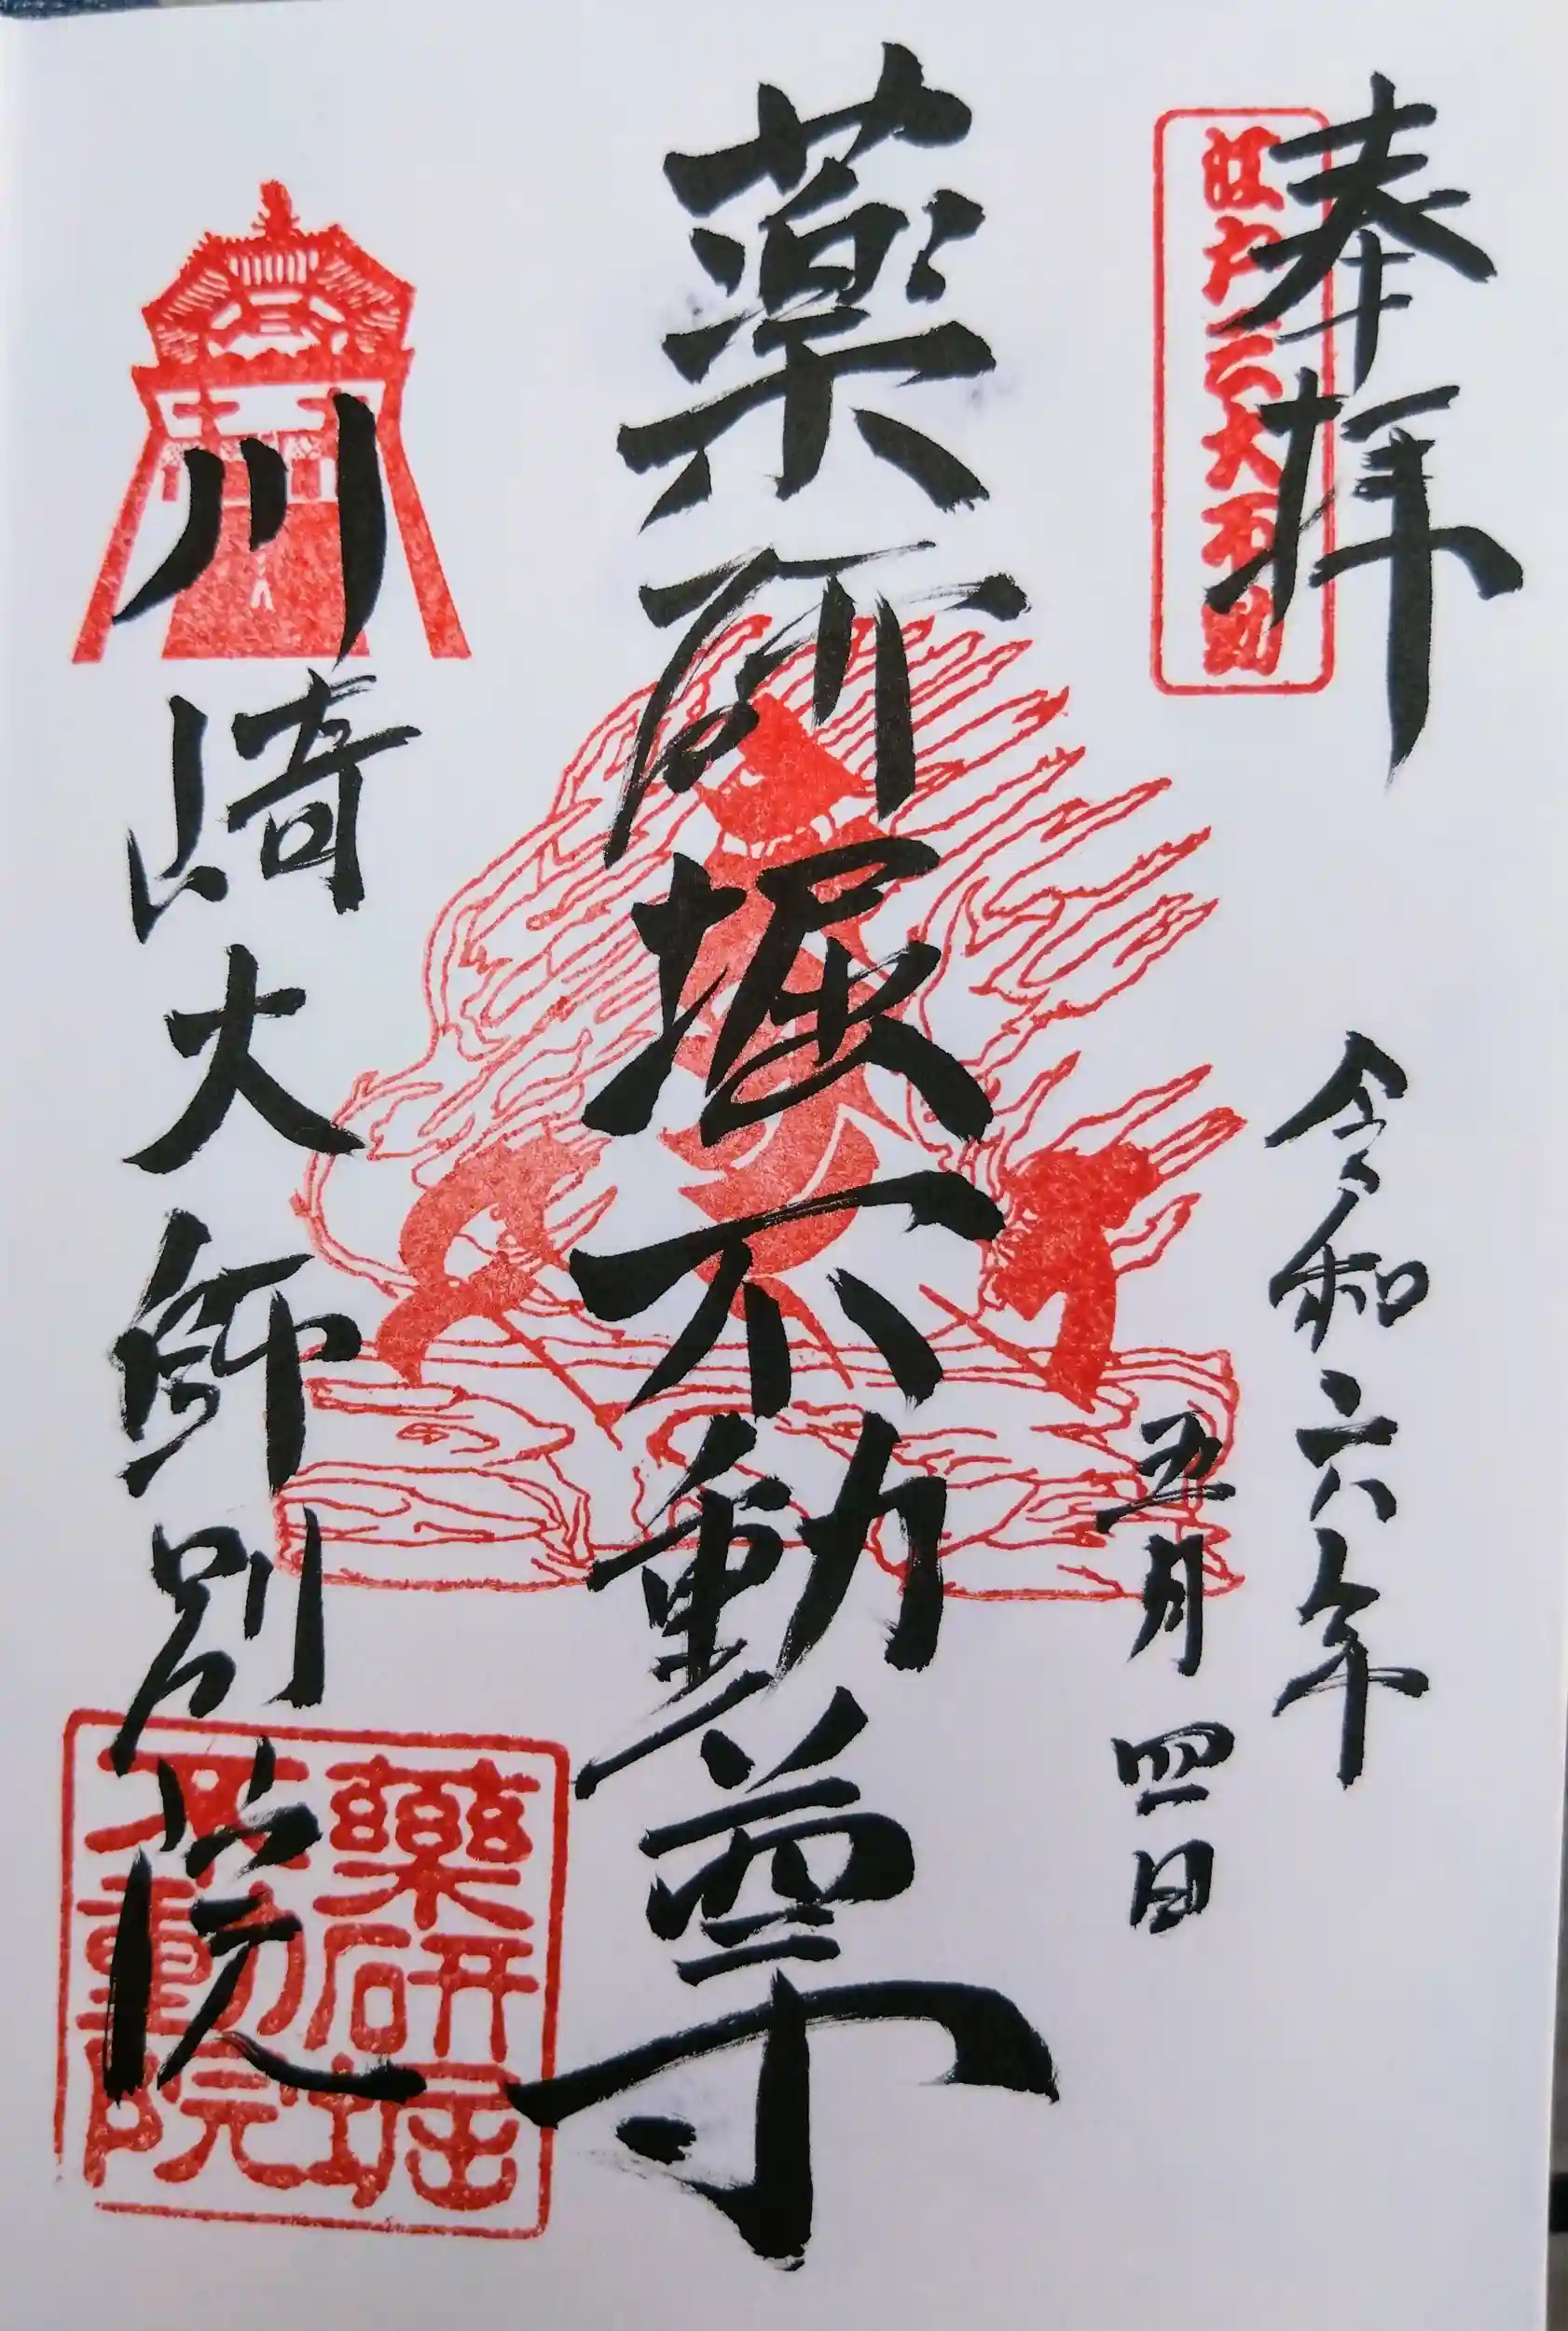 奉拝
江戸三大不動
令和六年
五月四日
薬研堀不動尊
川崎大師別院
薬研堀
不動院